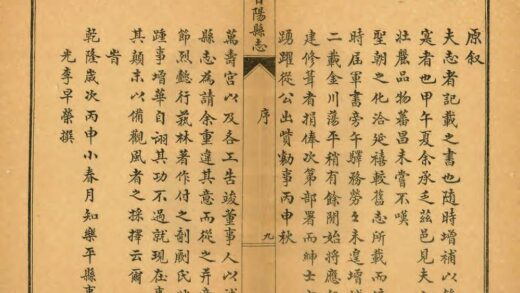 原叙
夫志者記載之書也隨時增補以
寞者也甲午夏余承乏茲邑見夫
壯麗品物蕃昌未嘗不嘆
聖朝之化洽延禧較舊志所載而
時屆軍書旁午驛務勞々未遑增
二載金川蕩平稍有餘閒始將應
建修葺者捐俸次第部署而紳士
踴躍從公出貲勷事丙申秋
昔陽縣志
序
九
萬壽宮以及各工告竣董事人以
縣志為請余重違其意而從之弃
節烈懿行蓺林著作付之剞劂氏
踵事增華自詡其功不過就現在事
其顛末以備觀風者之採擇云爾
旹
乾隆歲次丙申小春月知樂平縣事
光李早榮撰